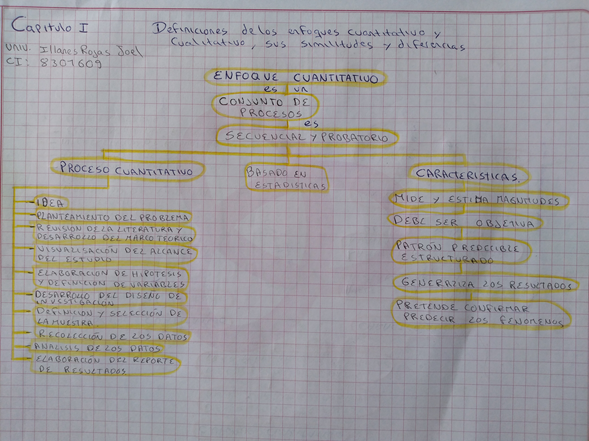 Capitulo I
Definiciones de los enfoques cuantitativo y
cualitativo, sus similitudes y diferencias
UNIV. Illanes Rojas Joel
CI: 8301609
ENFOQUE CUANTITATIVO
es un
CONJUNTO DE
PROCESOS
es
SECUENCIAL Y PROBATORIO
PROCESO CUANTITATIVO
IDEA
PLANTEAMIENTO DEL PROBLEMA
REVISION DE LA LITERATURA Y
DESARROLLO DEL MARCO TEORICO
VISUALISACIÓN DEL ALCANCE
DEL ESTUDIO
ELABORACION DE HIPOTESIS
Y DEFINICION DE VARIABLES
DESARROLLO DEL DISEÑO DE
INVESTIGACIÓN
DEFINICION Y SELECCIÓN DE
LA MUESTRA
RECOLECCIÓN DE LOS DATOS
ANALISIS DE LOS DATOS
ELABORACION DEL REPORTE
DE RESULTADOS
BASADO EN
ESTADISTICAS
CARACTERISTICAS
MIDE Y ESTIMA MAGNITUDES
DEBE SER OBJETIVA
PATRÓN PREDECIBLE
ESTRUCTURADO
GENERALIZA LOS RESULTADOS
PRETENDE CONFIRMAR
PREDECIR LOS FENOMENOS